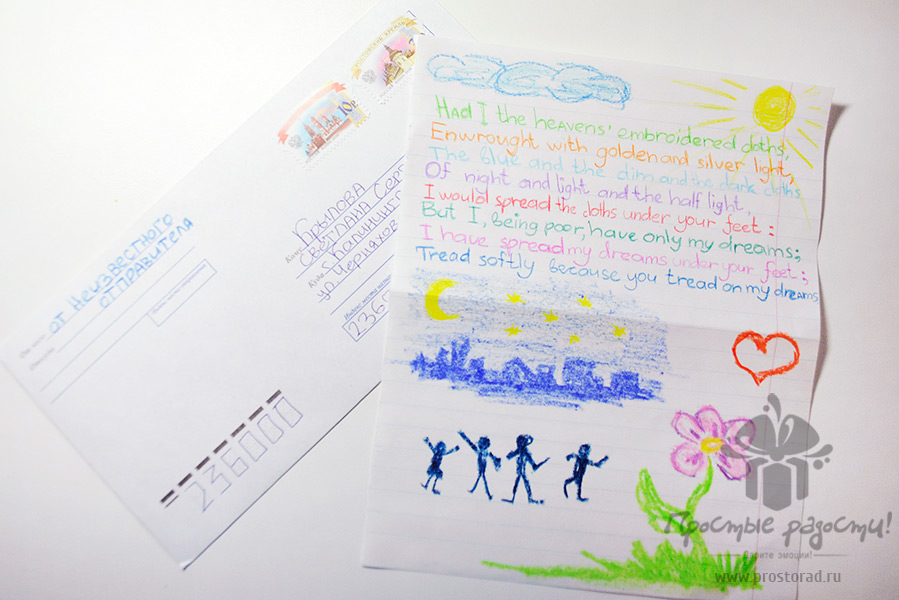 10р
от Неизвестного
отправителя
Кому
Брылова
Светлана
ул. Черняхов
236000
Had I the heavens' embroidered cloths,
Enwrought with golden and silver light,
The blue and the dim and the dark cloths
Of night and light and the half light,
I would spread the cloths under your feet:
But I, being poor, have only my dreams;
I have spread my dreams under your feet;
Tread softly because you tread on my dreams
Простые радости!
Дарите эмоции!
www.prostorad.ru